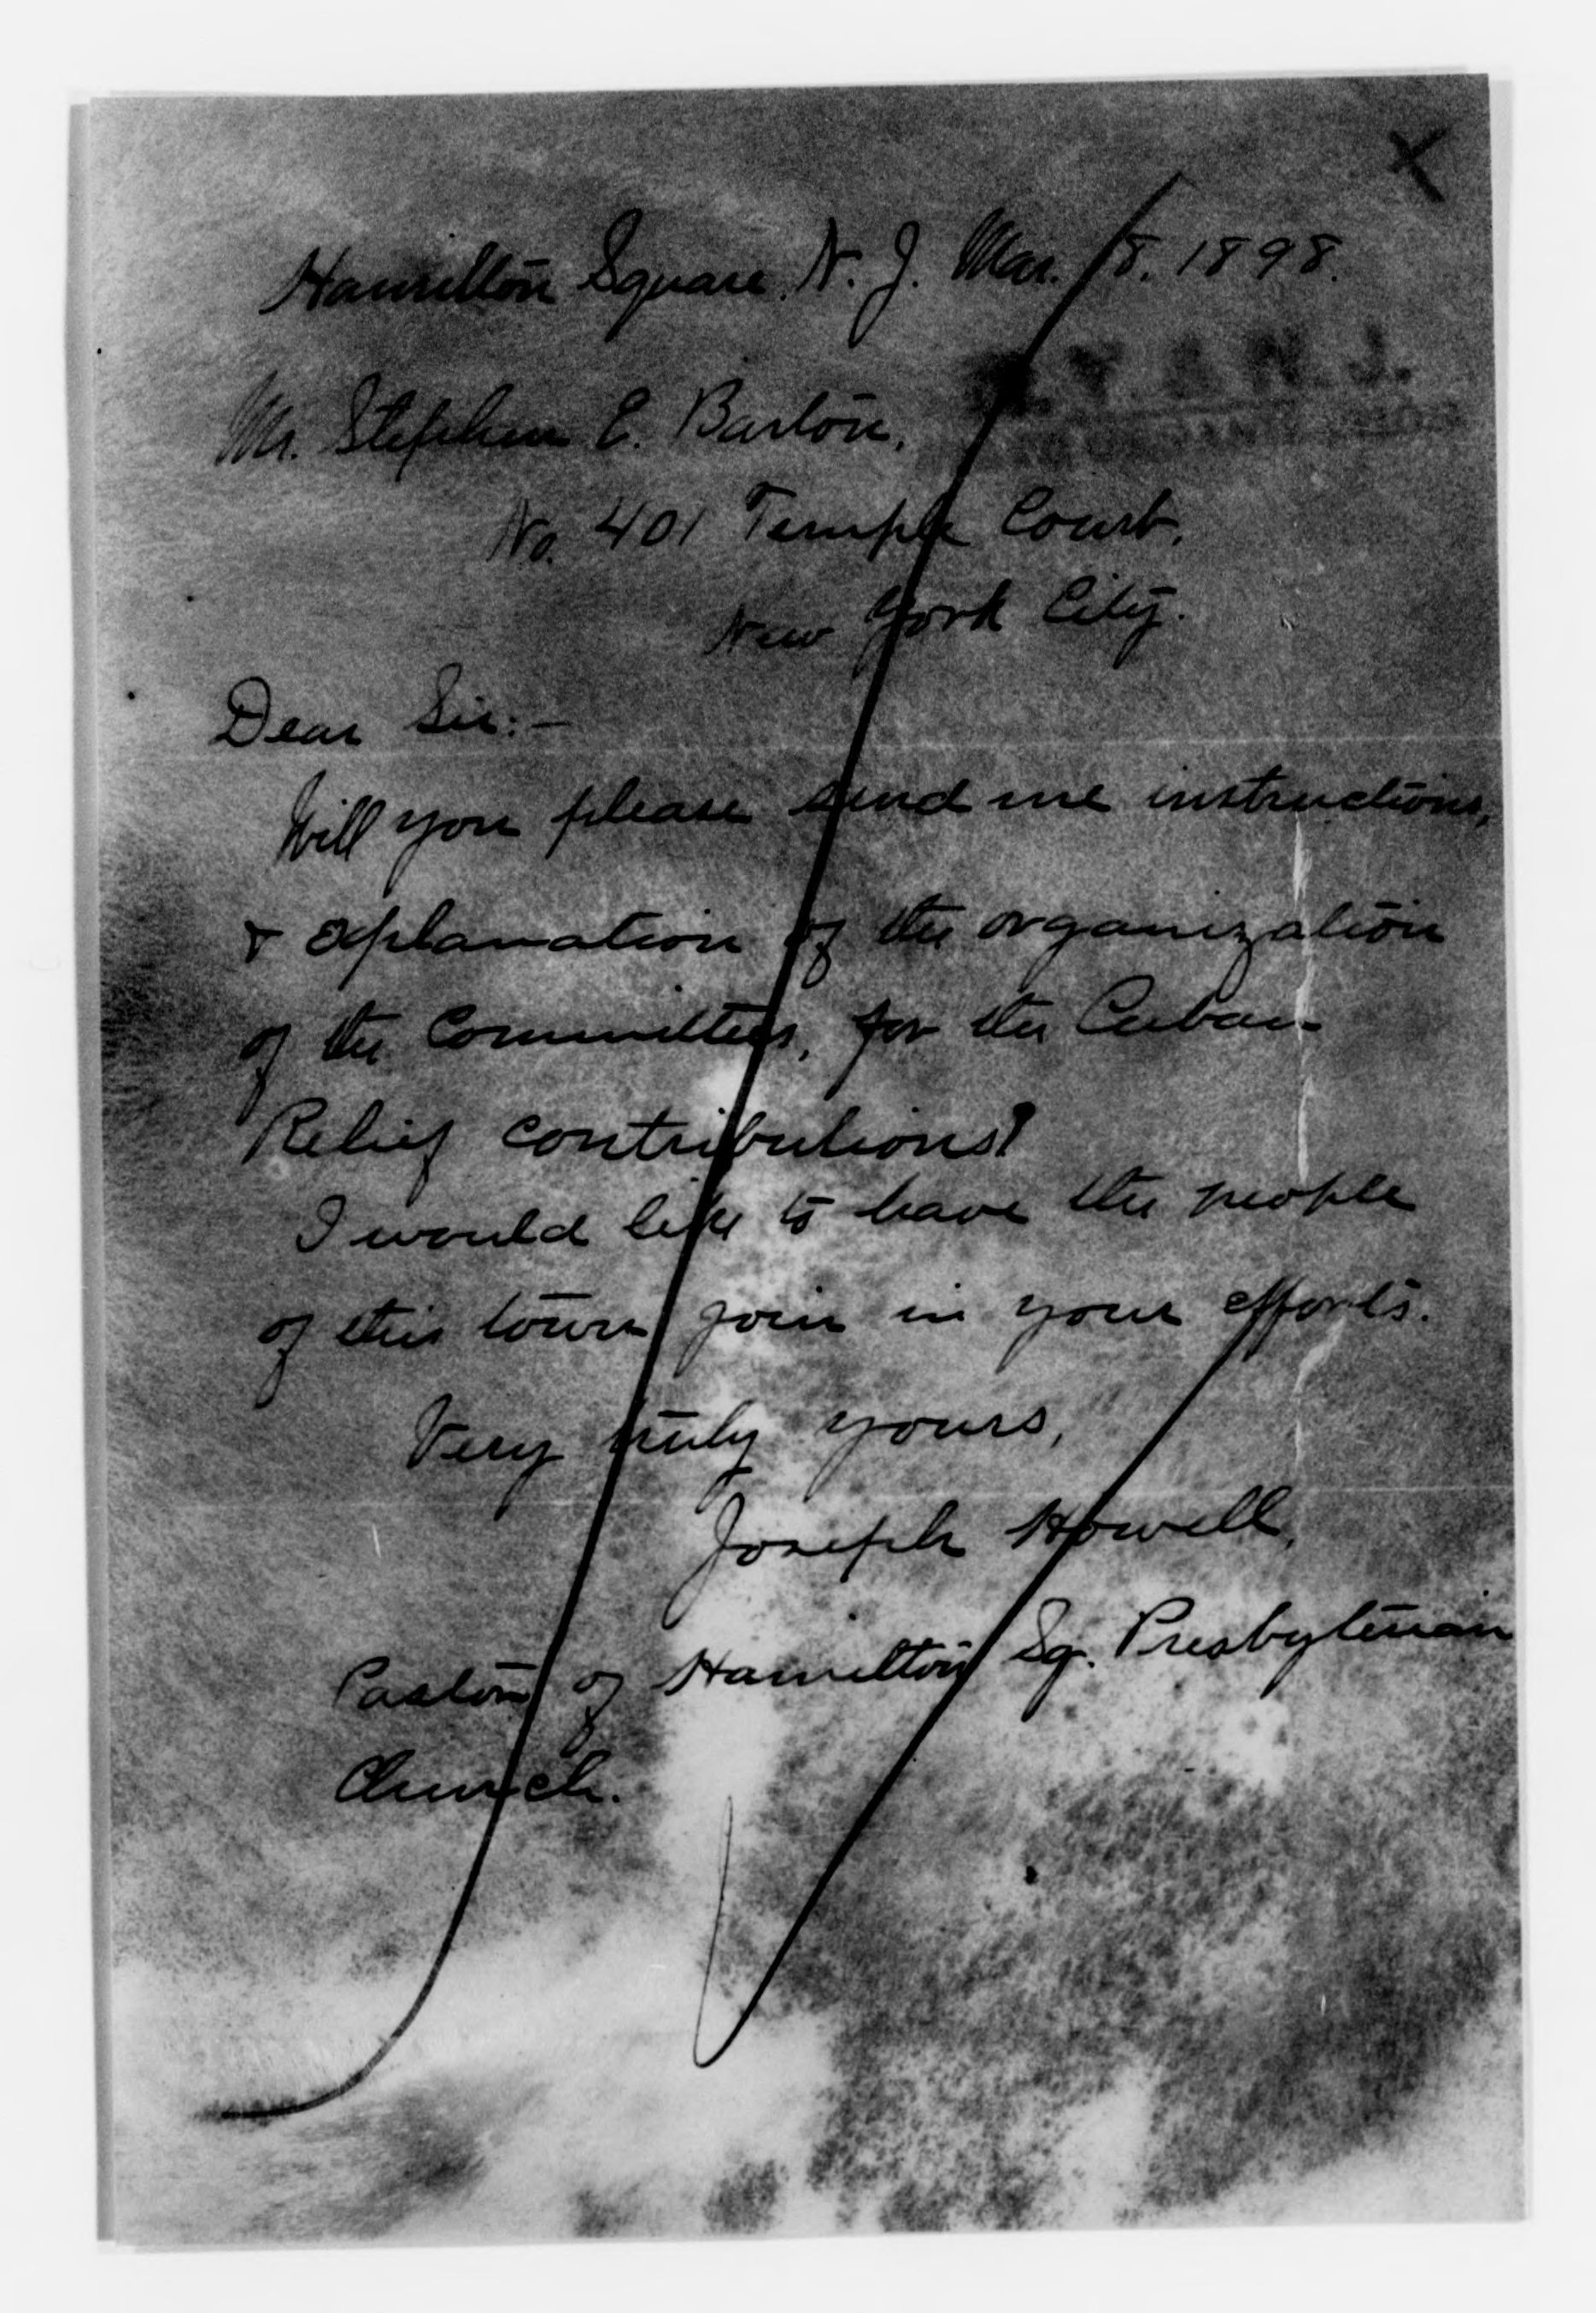 X
Hamilton Square. N. J. Mar. 18. 1898.
Mr. Stephen E. Barton,
No. 401 Temple Court,
New York City.
Dear Sir:—
Will you please send me instructions,
& explanation of the organization
of the Committees, for the Cuban
Relief contributions?
I would like to have the people
of this town join in your efforts.
Very truly yours,
Joseph Howell,
Pastor of Hamilton Sq. Presbyterian
Church.